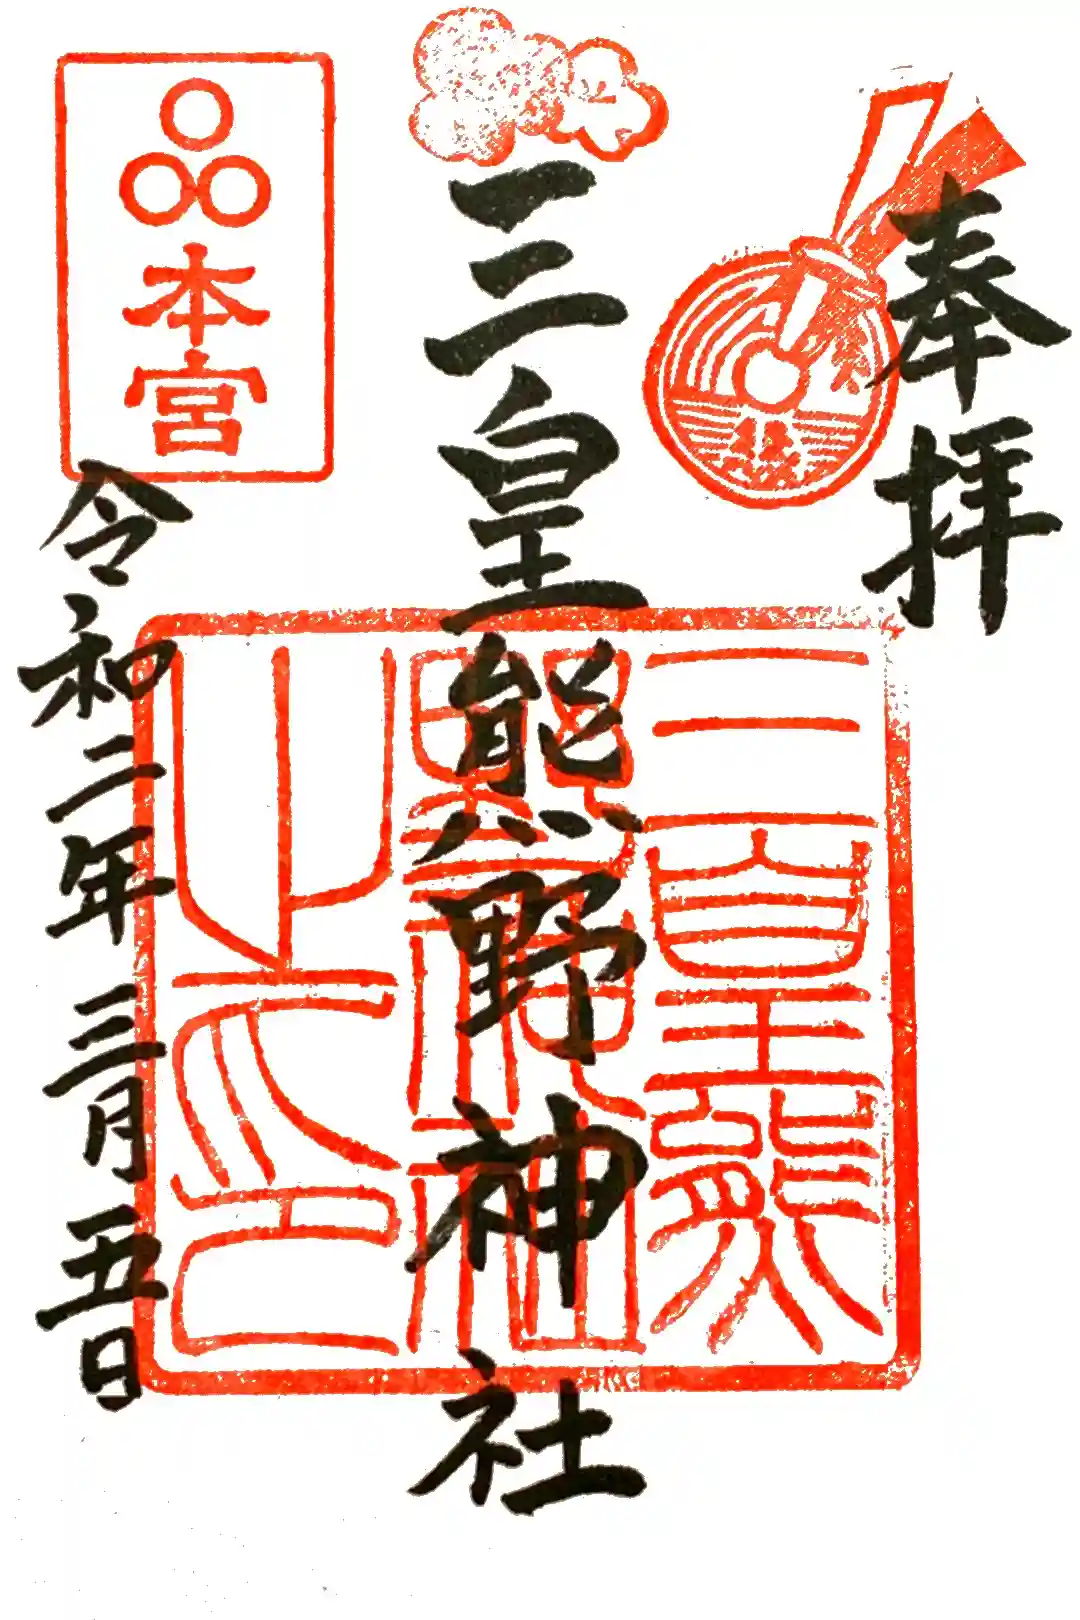 奉拝
三皇熊野神社
三皇熊野神社之印
本宮
令和二年三月五日